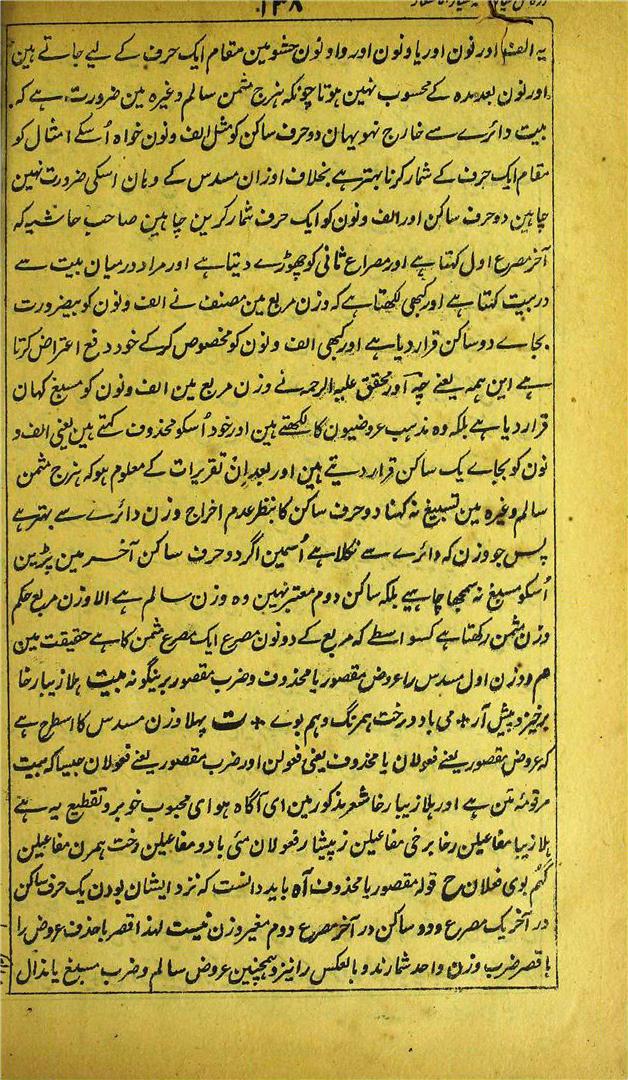 ۱۳۸
یہ الف اور نون اور یا و نون اور واو نون حشو مین مقام ایک حرف کے لیے جاتے ہین
اور نون بعد مدہ کے محسوب نہین ہوتا چونکہ ہزج مثمن سالم وغیرہ مین ضرورت ہے کہ
بیت دائرے سے خارج نہو یہان دو حرف ساکن کو مثل الف و نون خواہ اُسکے امثال کو
مقام ایک حرف کے شمار کرنا بہتر ہے بخلاف اوزان مسدس کے وہان اسکی ضرورت نہین
چاہین دو حرف ساکن اور الف و نون کو ایک حرف شمار کرین چاہین صاحب حاشیہ کہ
آخر مصرع اول کہتا ہے اور مصراع ثانی کو چھوڑے دیتا ہے اور مراد درمیان بیت سے
در بیت کہتا ہے اور کبھی لکھتا ہے کہ وزن مربع مین مصنف نے الف و نون کو بضرورت
بجاے دو ساکن قرار دیا ہے اور کبھی الف و نون کو مخصوص کر کے خود دفع اعتراض کرتا
ہے این ہمہ یعنے چہ اور محقق علیہ الرحمہ نے وزن مربع مین الف و نون کو مسبغ کہان
قرار دیا ہے بلکہ وہ مذہب عروضیون کا لکھتے ہین اور خود اُسکو محذوف کہتے ہین یعنی الف و
نون کو بجاے یک ساکن قرار دیتے ہین اور بعد اِن تقریرات کے معلوم ہو کہ ہزج مثمن
سالم وغیرہ مین تسبیغ نہ کہنا دو حرف ساکن کا بنظر عدم اخراج وزن دائرے سے بہتر ہے
پس جو وزن کہ دائرے سے نکلا ہے اُسمین اگر دو حرف ساکن آخر مین پڑین
اُسکو مسبغ نہ سمجھا چاہیے بلکہ ساکن دوم معتبر نہین وہ وزن سالم ہے الا وزن مربع حکم
وزن مثمن رکھتا ہے کسواسطے کہ مربع کے دونون مصرع ایک مصرع مثمن کا ہے حقیقت مین
هم ووزن اول مسدس را عروض مقصور یا محذوف و ضرب مقصور برینگونہ بیت ہلا زیبا رخا
برخیز و پیش آر * می باد و رخت ہمرنگ و ہم بوے * ت پہلا وزن مسدس کا اسطرح ہے
کہ عروض مقصور یعنے فعولان یا محذوف یعنی فعولن اور ضرب مقصور یعنے فعولان جیسا کہ بیت
مرقومۂ متن ہے اور ہلا زیبا رخا شعر مذکور مین ای آگاہ ہو ای محبوب خوبرو تقطیع یہ ہے
ہلا زیبا مفاعیلن رخا برخی مفاعیلن ز پیشار فعولان مئی باد و مفاعیلن رخت ہمرن مفاعیلن
گہُم بوی فعلان ح قولہ مقصور یا محذوف آہ باید دانست کہ نزد ایشان بودن یک حرف ساکن
در آخر یک مصرع و دو ساکن در آخر مصرع دوم مغیر وزن نیست لہذا قصر با حذف عروض را
با قصر ضرب وزن واحد شمارند و بالعکس را نیز و ہمچنین عروض سالم و ضرب مسبغ یا مذال